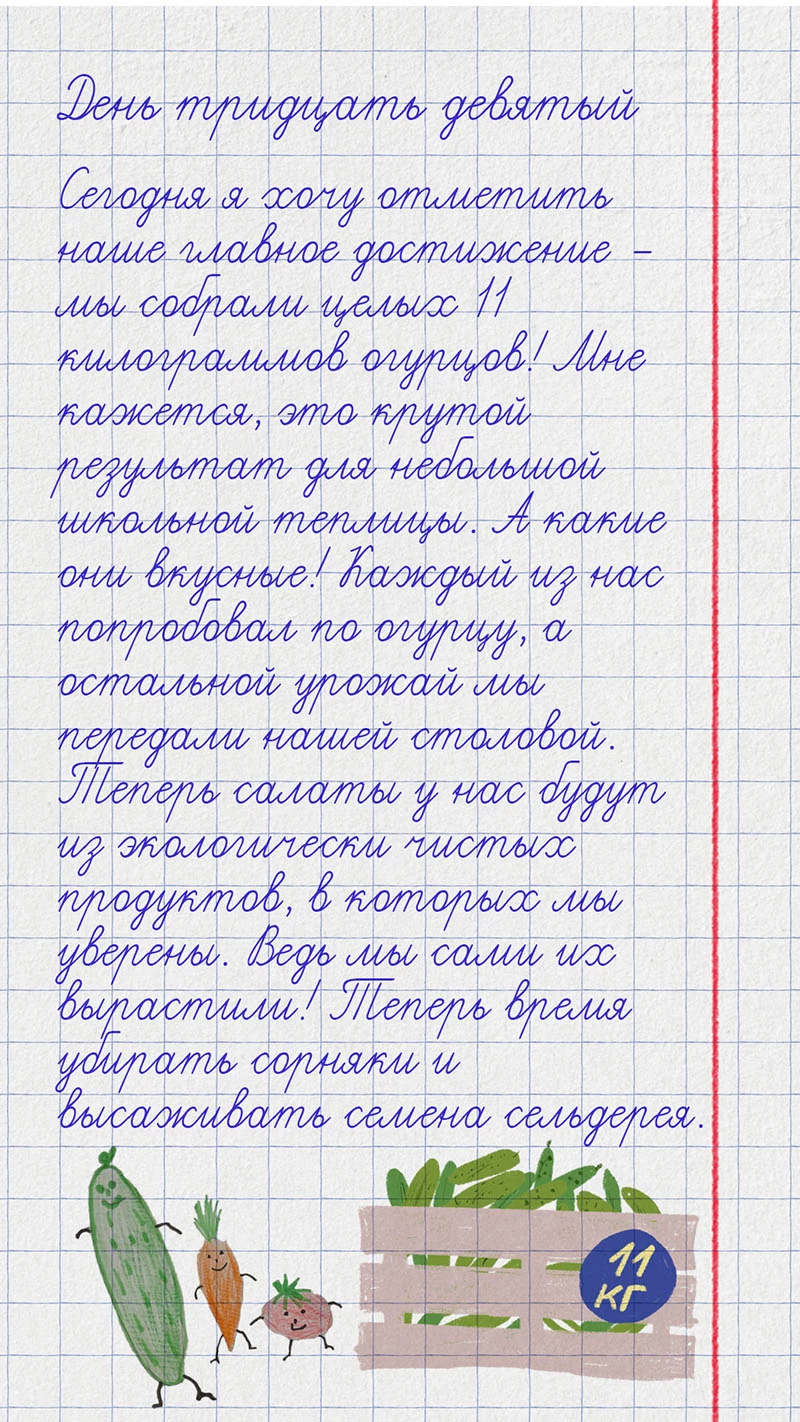 День тридцать девятый
Сегодня я хочу отметить
наше главное достижение –
мы собрали целых 11
килограммов огурцов! Мне
кажется, это крутой
результат для небольшой
школьной теплицы. А какие
они вкусные! Каждый из нас
попробовал по огурцу, а
остальной урожай мы
передали нашей столовой.
Теперь салаты у нас будут
из экологически чистых
продуктов, в которых мы
уверены. Ведь мы сами их
вырастили! Теперь время
убирать сорняки и
высаживать семена сельдерея.
11
кг